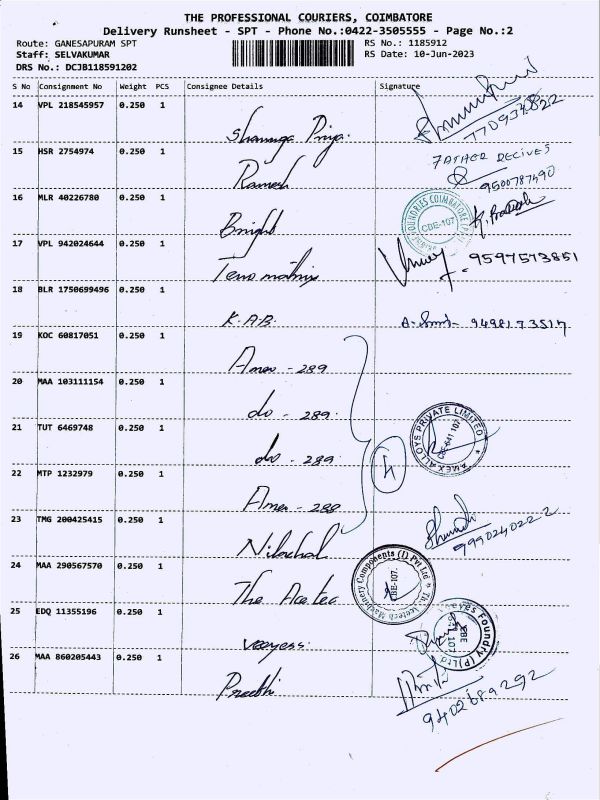 THE PROFESSIONAL COURIERS, COIMBATORE
Delivery Runsheet - SPT - Phone No.:0422-3505555 - Page No.:2
Route: GANESAPURAM SPT RS No.: 1185912
Staff: SELVAKUMAR RS Date: 10-Jun-2023
DRS No.: DCJB118591202
S No Consignment No Weight PCS Consignee Details Signature
14 VPL 218545957 0.250 1 Shanmuga Priya.
15 HSR 2754974 0.250 1 Ramesh FATHER RECIVES 9500787490
16 MLR 40226780 0.250 1 Bright FOUNDRIES COIMBATORE CBE-107
17 VPL 942024644 0.250 1 9597573851
18 BLR 1750699496 0.250 1 K.A.B. 9498173517
19 KOC 60817051 0.250 1 Amex - 289
20 MAA 103111154 0.250 1 do - 289.
21 TUT 6469748 0.250 1 do - 289 AMEX ALLOYS PRIVATE LIMITED CBE-641 107
4
22 MTP 1232979 0.250 1 Amex - 288
23 TMG 200425415 0.250 1 9990240222
24 MAA 290567570 0.250 1 The Acetec Machinery Components (I) Pvt Ltd CBE-107.
25 EDQ 11355196 0.250 1 veeyess. Foundry (P) Ltd CBE
26 MAA 860205443 0.250 1 Preethi 9402689292